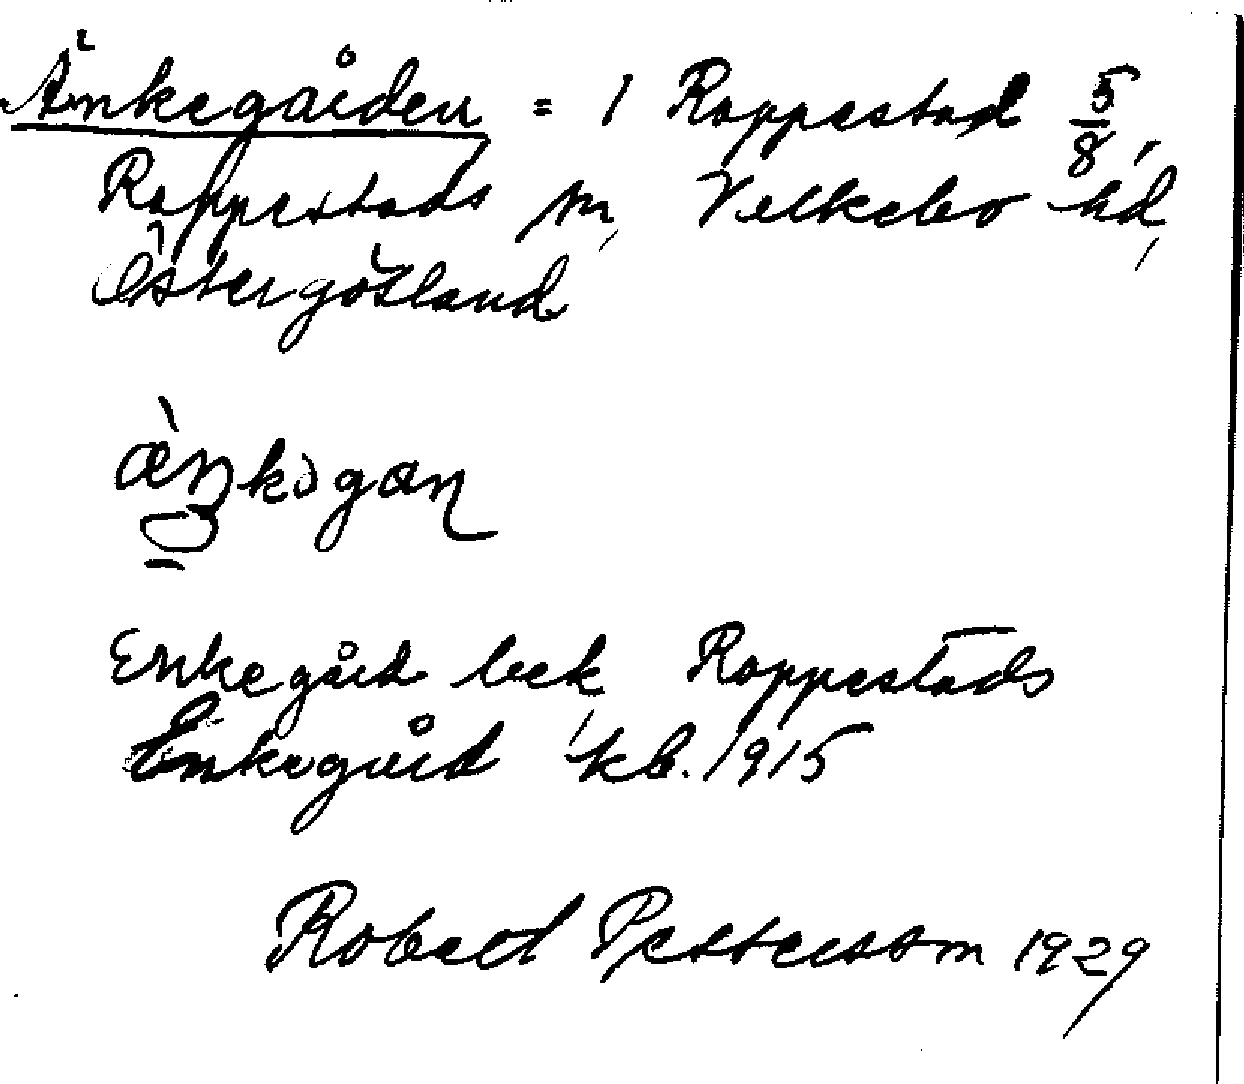 Änkegården = 1 Rappestad 5/8,
Rappestads sn, Valkebo hd,
Östergötland
æ̀ŋkəgαɳ
Enkegård bek, Rappestads
Enkegård kb. 1915
Robert Pettersson 1929